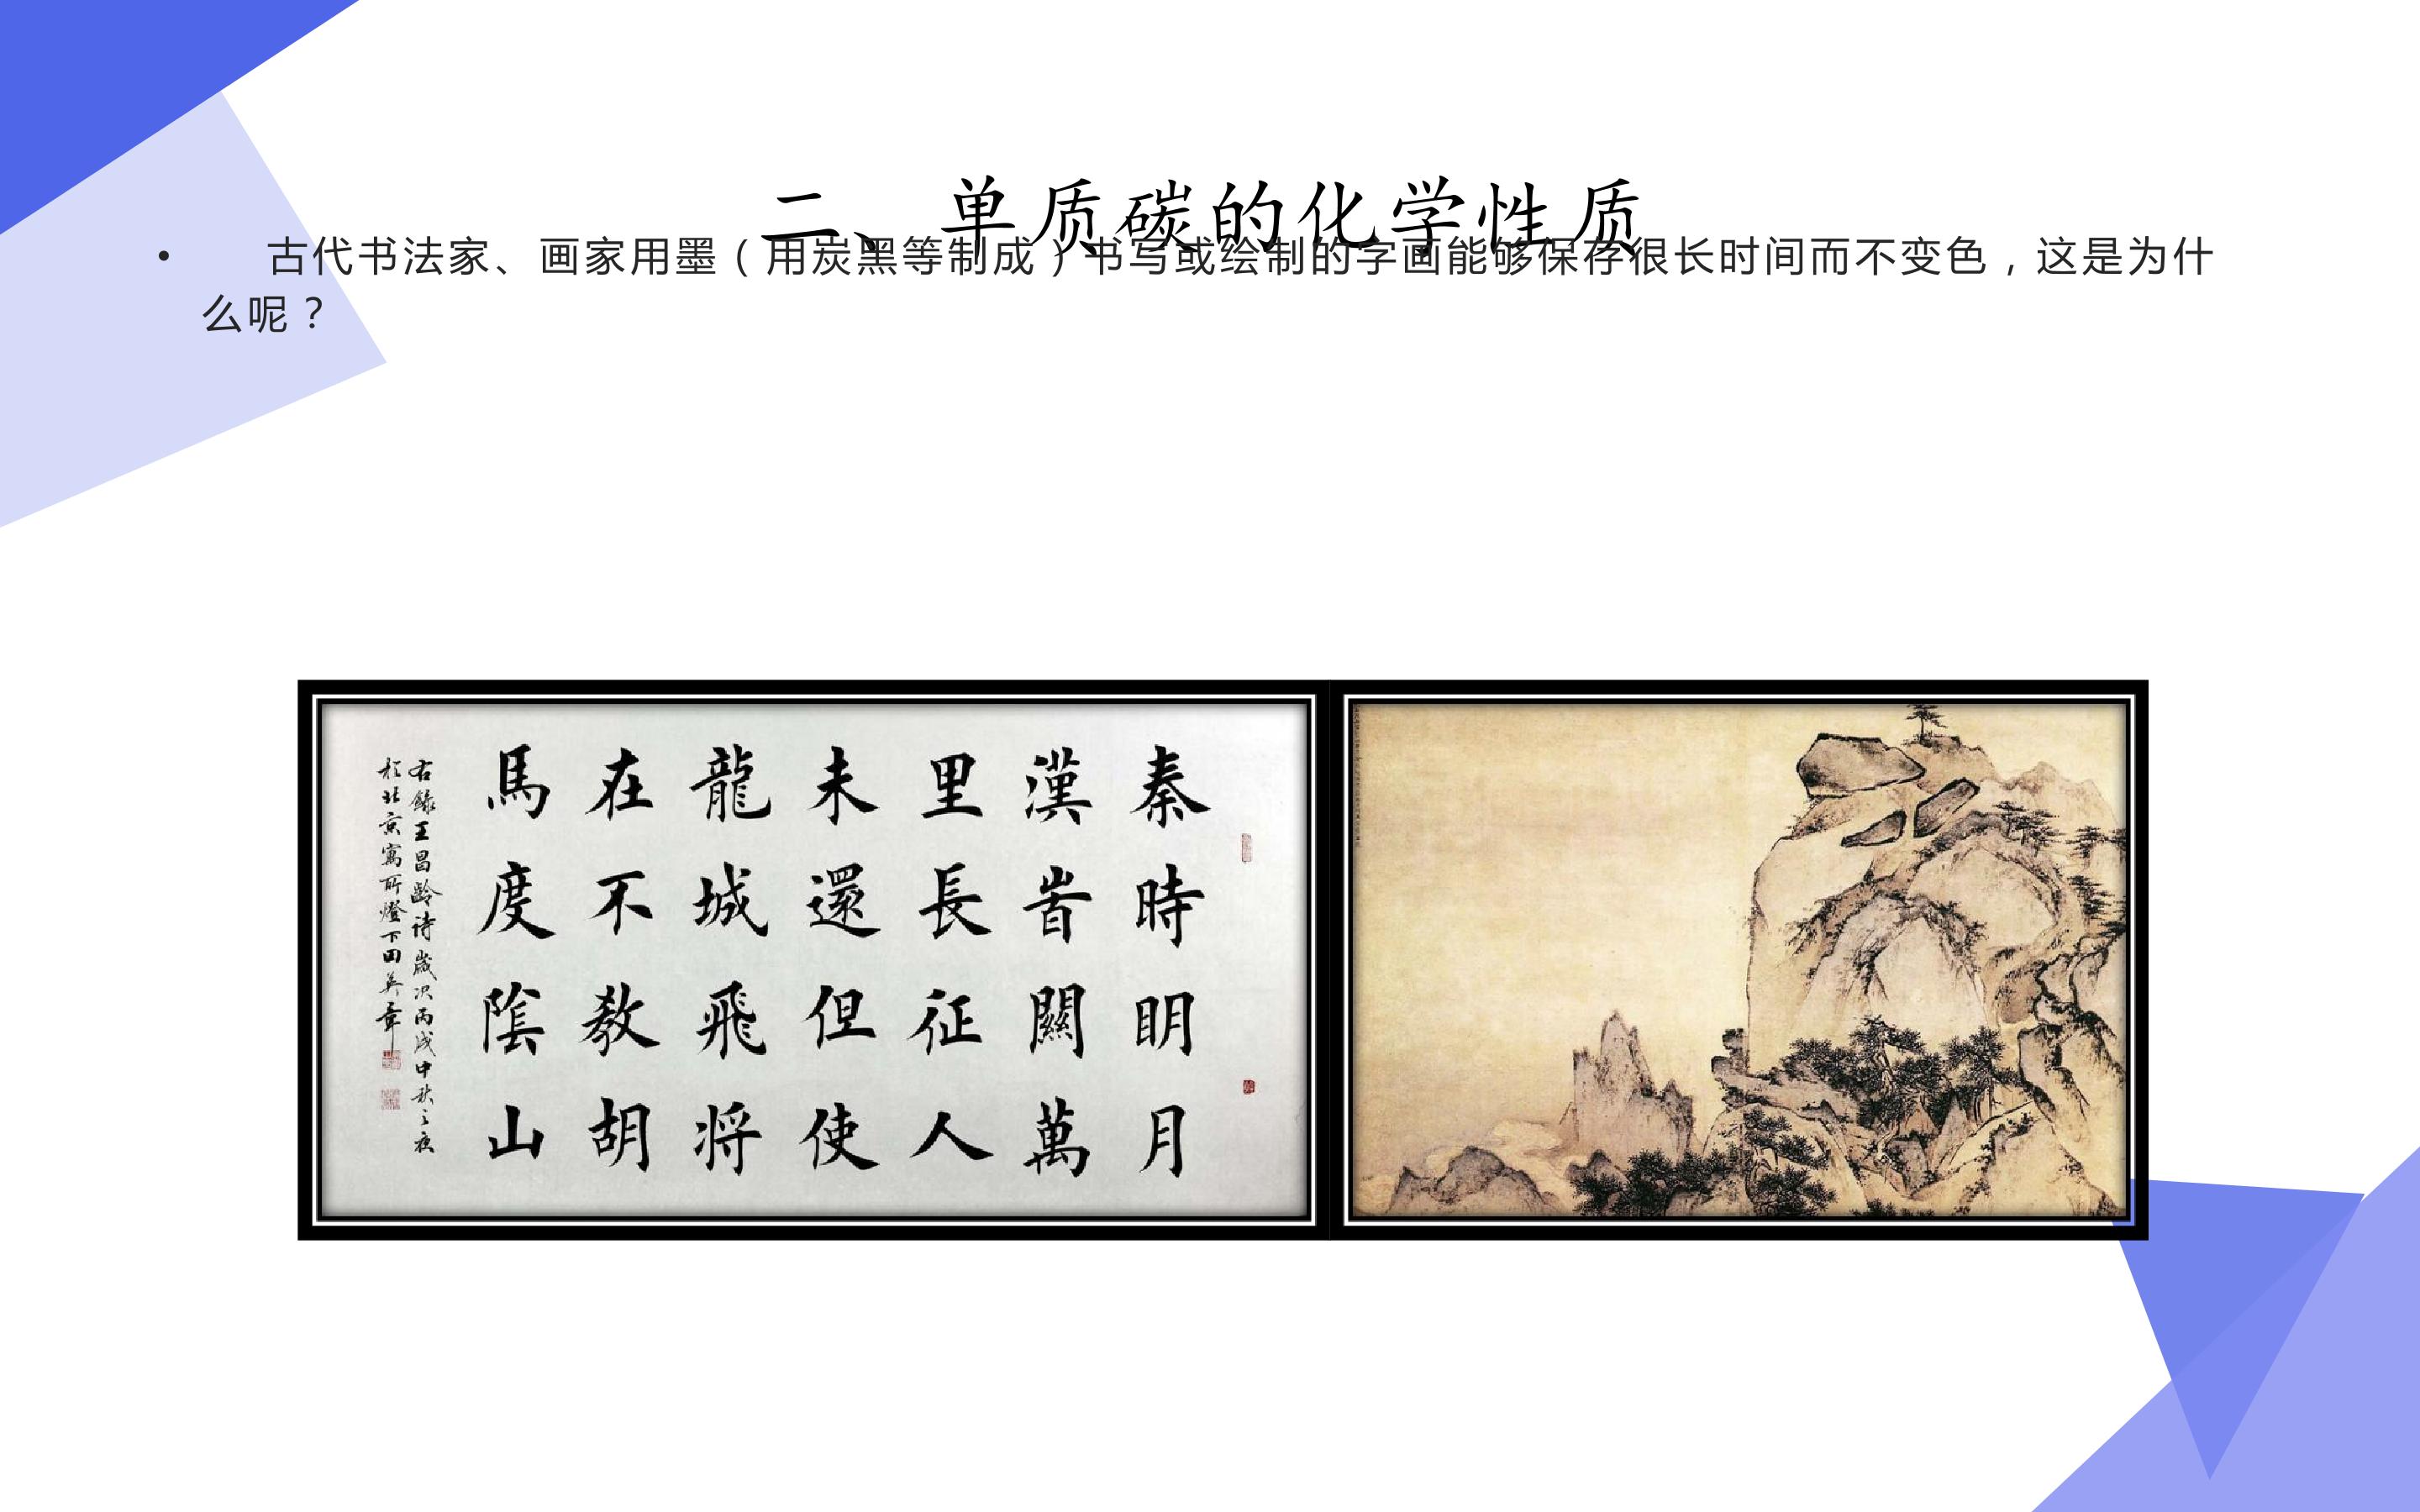 二、单质碳的化学性质
• 古代书法家、画家用墨（用炭黑等制成）书写或绘制的字画能够保存很长时间而不变色，这是为什
么呢？
秦時明月
漢峕關萬
里長征人
未還但使
龍城飛将
在不教胡
馬度陰山
右錄王昌齡诗歲次丙戌中秋之夜
於北京寓所燈下田英章